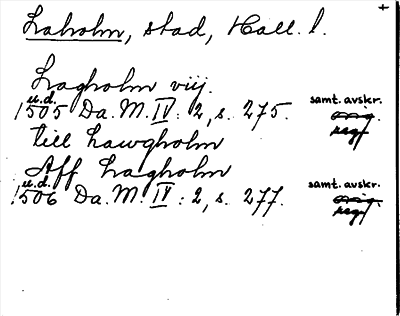 +
Laholm, stad, Hall. l.
Lagholm viij.
u.d. samt. avskr.
1505 Da. M. IV: 2, s. 275. orig.
regf
till Lawgholm
Aff Lagholm
u.d. samt. avskr.
1506 Da. M. IV: 2, s. 277. orig.
regf